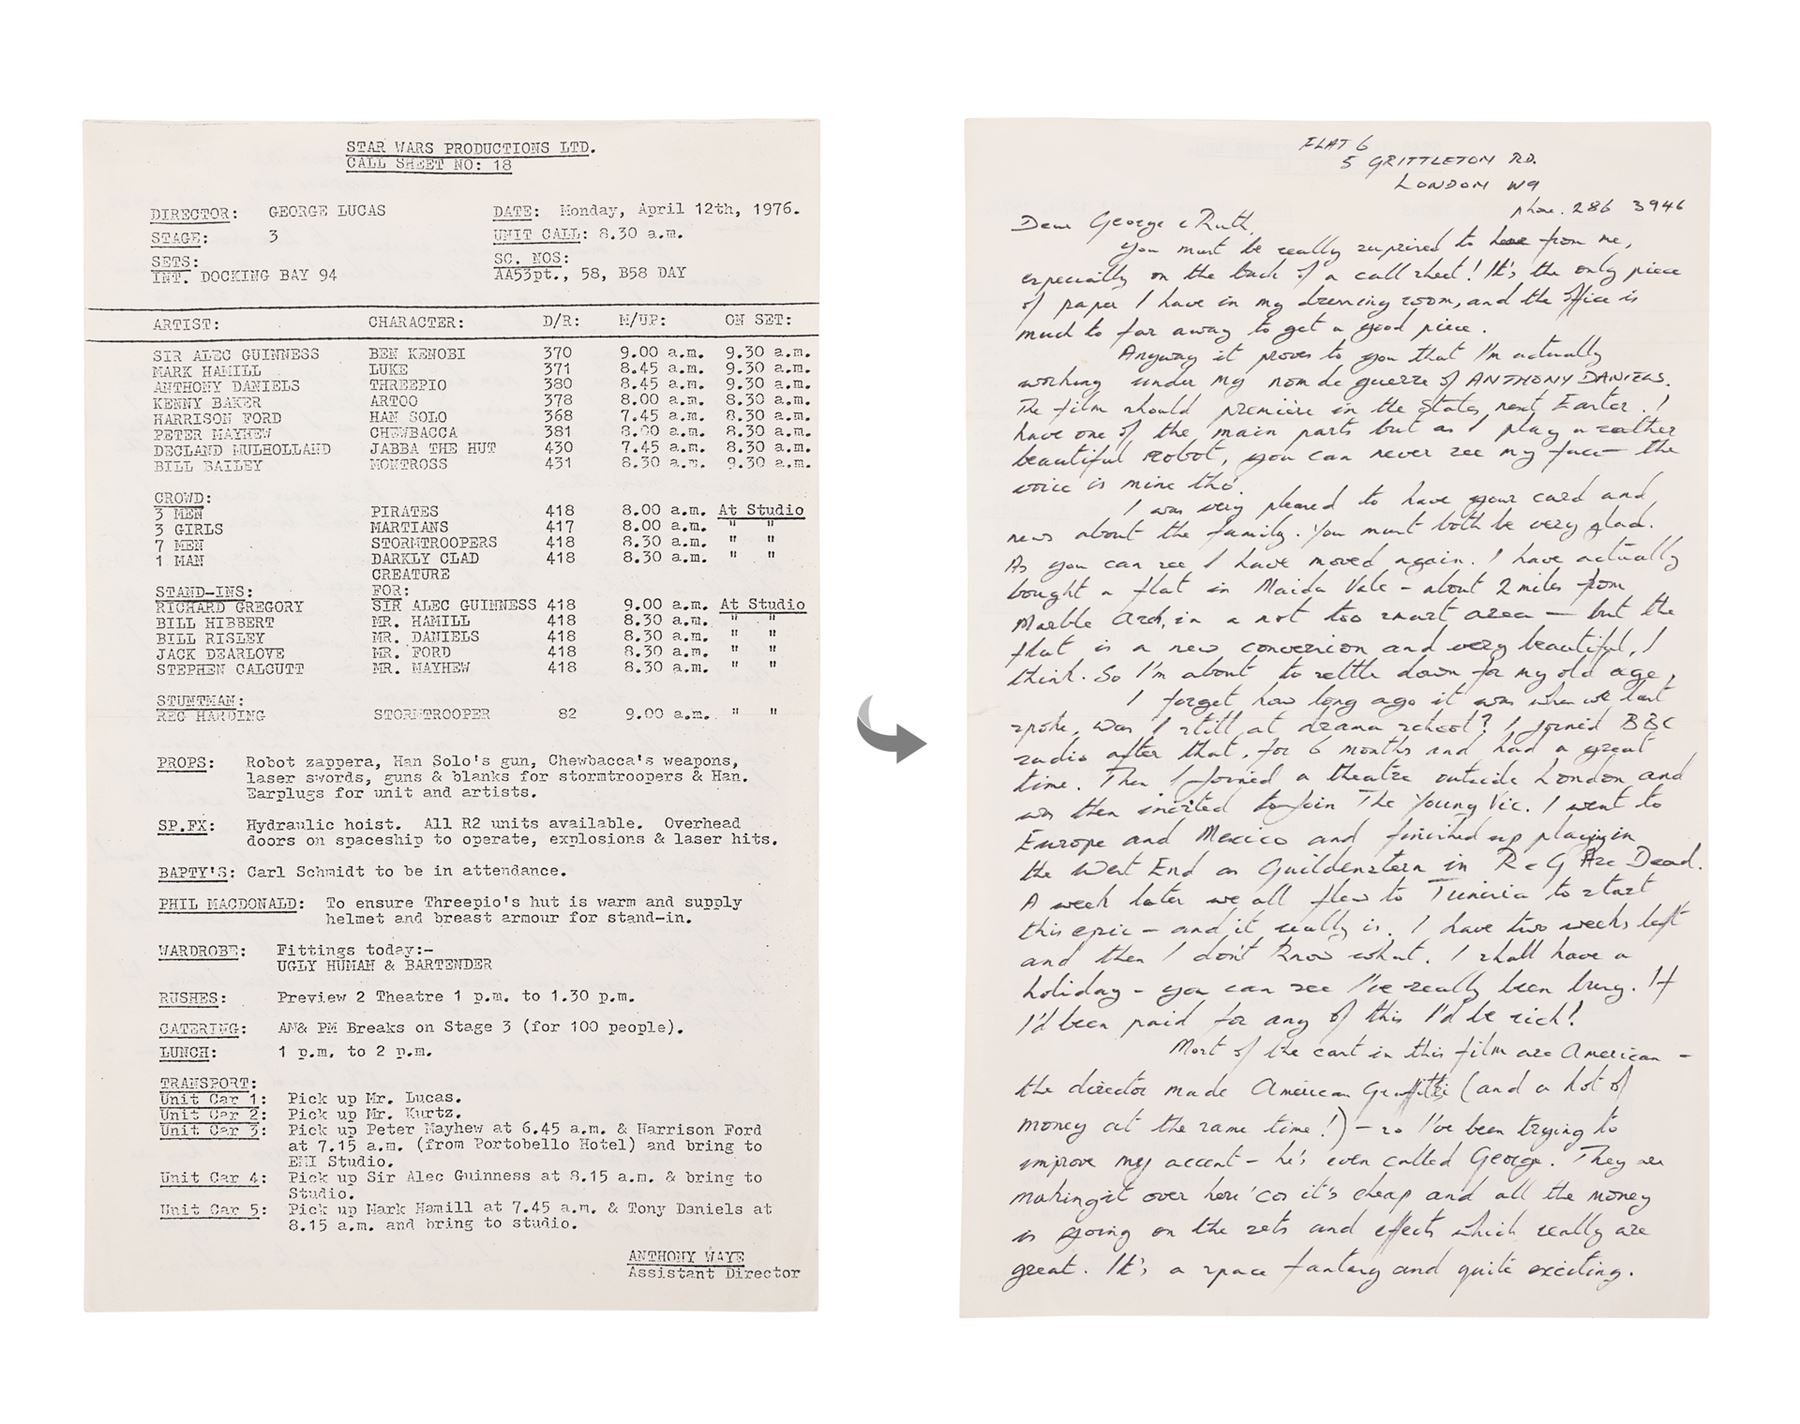 STAR WARS PRODUCTIONS LTD.
CALL SHEET NO: 18
DIRECTOR: GEORGE LUCAS DATE: Monday, April 12th, 1976.
STAGE: 3 UNIT CALL: 8.30 a.m.
SETS: SC. NOS:
INT. DOCKING BAY 94 AA53pt., 58, B58 DAY
ARTIST: CHARACTER: D/R: M/UP: ON SET:
SIR ALEC GUINNESS BEN KENOBI 370 9.00 a.m. 9.30 a.m.
MARK HAMILL LUKE 371 8.45 a.m. 9.30 a.m.
ANTHONY DANIELS THREEPIO 380 8.45 a.m. 9.30 a.m.
KENNY BAKER ARTOO 378 8.00 a.m. 8.30 a.m.
HARRISON FORD HAN SOLO 368 7.45 a.m. 8.30 a.m.
PETER MAYHEW CHEWBACCA 381 8.00 a.m. 8.30 a.m.
DECLAND MULHOLLAND JABBA THE HUT 430 7.45 a.m. 8.30 a.m.
BILL BAILEY MONTROSS 431 8.30 a.m. 9.30 a.m.
CROWD:
3 MEN PIRATES 418 8.00 a.m. At Studio
3 GIRLS MARTIANS 417 8.00 a.m. " "
7 MEN STORMTROOPERS 418 8.30 a.m. " "
1 MAN DARKLY CLAD 418 8.30 a.m. " "
CREATURE
STAND-INS: FOR:
RICHARD GREGORY SIR ALEC GUINNESS 418 9.00 a.m. At Studio
BILL HIBBERT MR. HAMILL 418 8.30 a.m. " "
BILL RISLEY MR. DANIELS 418 8.30 a.m. " "
JACK DEARLOVE MR. FORD 418 8.30 a.m. " "
STEPHEN CALCUTT MR. MAYHEW 418 8.30 a.m. " "
STUNTMAN:
REG HARDING STORMTROOPER 82 9.00 a.m. " "
PROPS: Robot zappera, Han Solo's gun, Chewbacca's weapons,
laser swords, guns & blanks for stormtroopers & Han.
Earplugs for unit and artists.
SP.FX: Hydraulic hoist. All R2 units available. Overhead
doors on spaceship to operate, explosions & laser hits.
BAPTY'S: Carl Schmidt to be in attendance.
PHIL MACDONALD: To ensure Threepio's hut is warm and supply
helmet and breast armour for stand-in.
WARDROBE: Fittings today:-
UGLY HUMAN & BARTENDER
RUSHES: Preview 2 Theatre 1 p.m. to 1.30 p.m.
CATERING: AM& PM Breaks on Stage 3 (for 100 people).
LUNCH: 1 p.m. to 2 p.m.
TRANSPORT:
Unit Car 1: Pick up Mr. Lucas.
Unit Car 2: Pick up Mr. Kurtz.
Unit Car 3: Pick up Peter Mayhew at 6.45 a.m. & Harrison Ford
at 7.15 a.m. (from Portobello Hotel) and bring to
EMI Studio.
Unit Car 4: Pick up Sir Alec Guinness at 8.15 a.m. & bring to
Studio.
Unit Car 5: Pick up Mark Hamill at 7.45 a.m. & Tony Daniels at
8.15 a.m. and bring to studio.
ANTHONY WAYE
Assistant Director
FLAT 6
5 GRITTLETON RD.
LONDON W9
phone. 286 3946
Dear George & Ruth,
You must be really surprised to hear from me,
especially on the back of a call sheet! It's the only piece
of paper I have in my dressing room, and the office is
much to far away to get a good piece.
Anyway it proves to you that I'm actually
working under my nom de guerre of ANTHONY DANIELS.
The film should premiere in the States next Easter. I
have one of the main parts but as I play a rather
beautiful robot, you can never see my face – the
voice is mine tho'.
I was very pleased to have your card and
news about the family. You must both be very glad.
As you can see I have moved again. I have actually
bought a flat in Maida Vale – about 2 miles from
Marble Arch, in a not too smart area – but the
flat is a new conversion and very beautiful, I
think. So I'm about to settle down for my old age.
I forget how long ago it was when we last
spoke, was I still at drama school? I joined BBC
radio after that, for 6 months and had a great
time. Then I joined a theatre outside London and
was then invited to join The Young Vic. I went to
Europe and Mexico and finished up playing in
the West End as Guildenstern in R & G Are Dead.
A week later we all flew to Tunisia to start
this epic – and it really is. I have two weeks left
and then I don't know what. I shall have a
holiday – you can see I've really been busy. If
I'd been paid for any of this I'd be rich!
Most of the cast in this film are American –
the director made American Graffitti (and a lot of
money at the same time!) – so I've been trying to
improve my accent – he's even called George. They are
making it over here 'cos it's cheap and all the money
is going on the sets and effects which really are
great. It's a space fantasy and quite exciting.